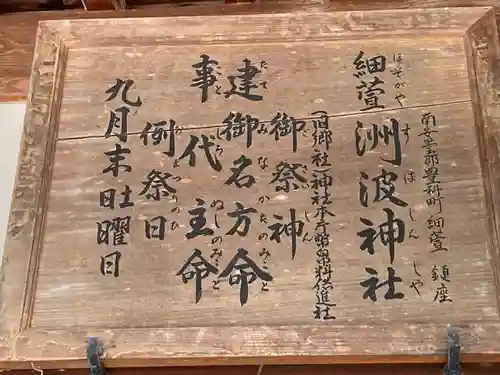 南安曇郡豊科町 細萱 鎮座
細萱 洲波神社
ほそがや すはじんしや
(旧郷社)神社本庁幣帛料供進社
御祭神
建御名方命
たてみなかたのみこと
事代主命
ことしろぬしのみこと
例祭日
九月末土曜日